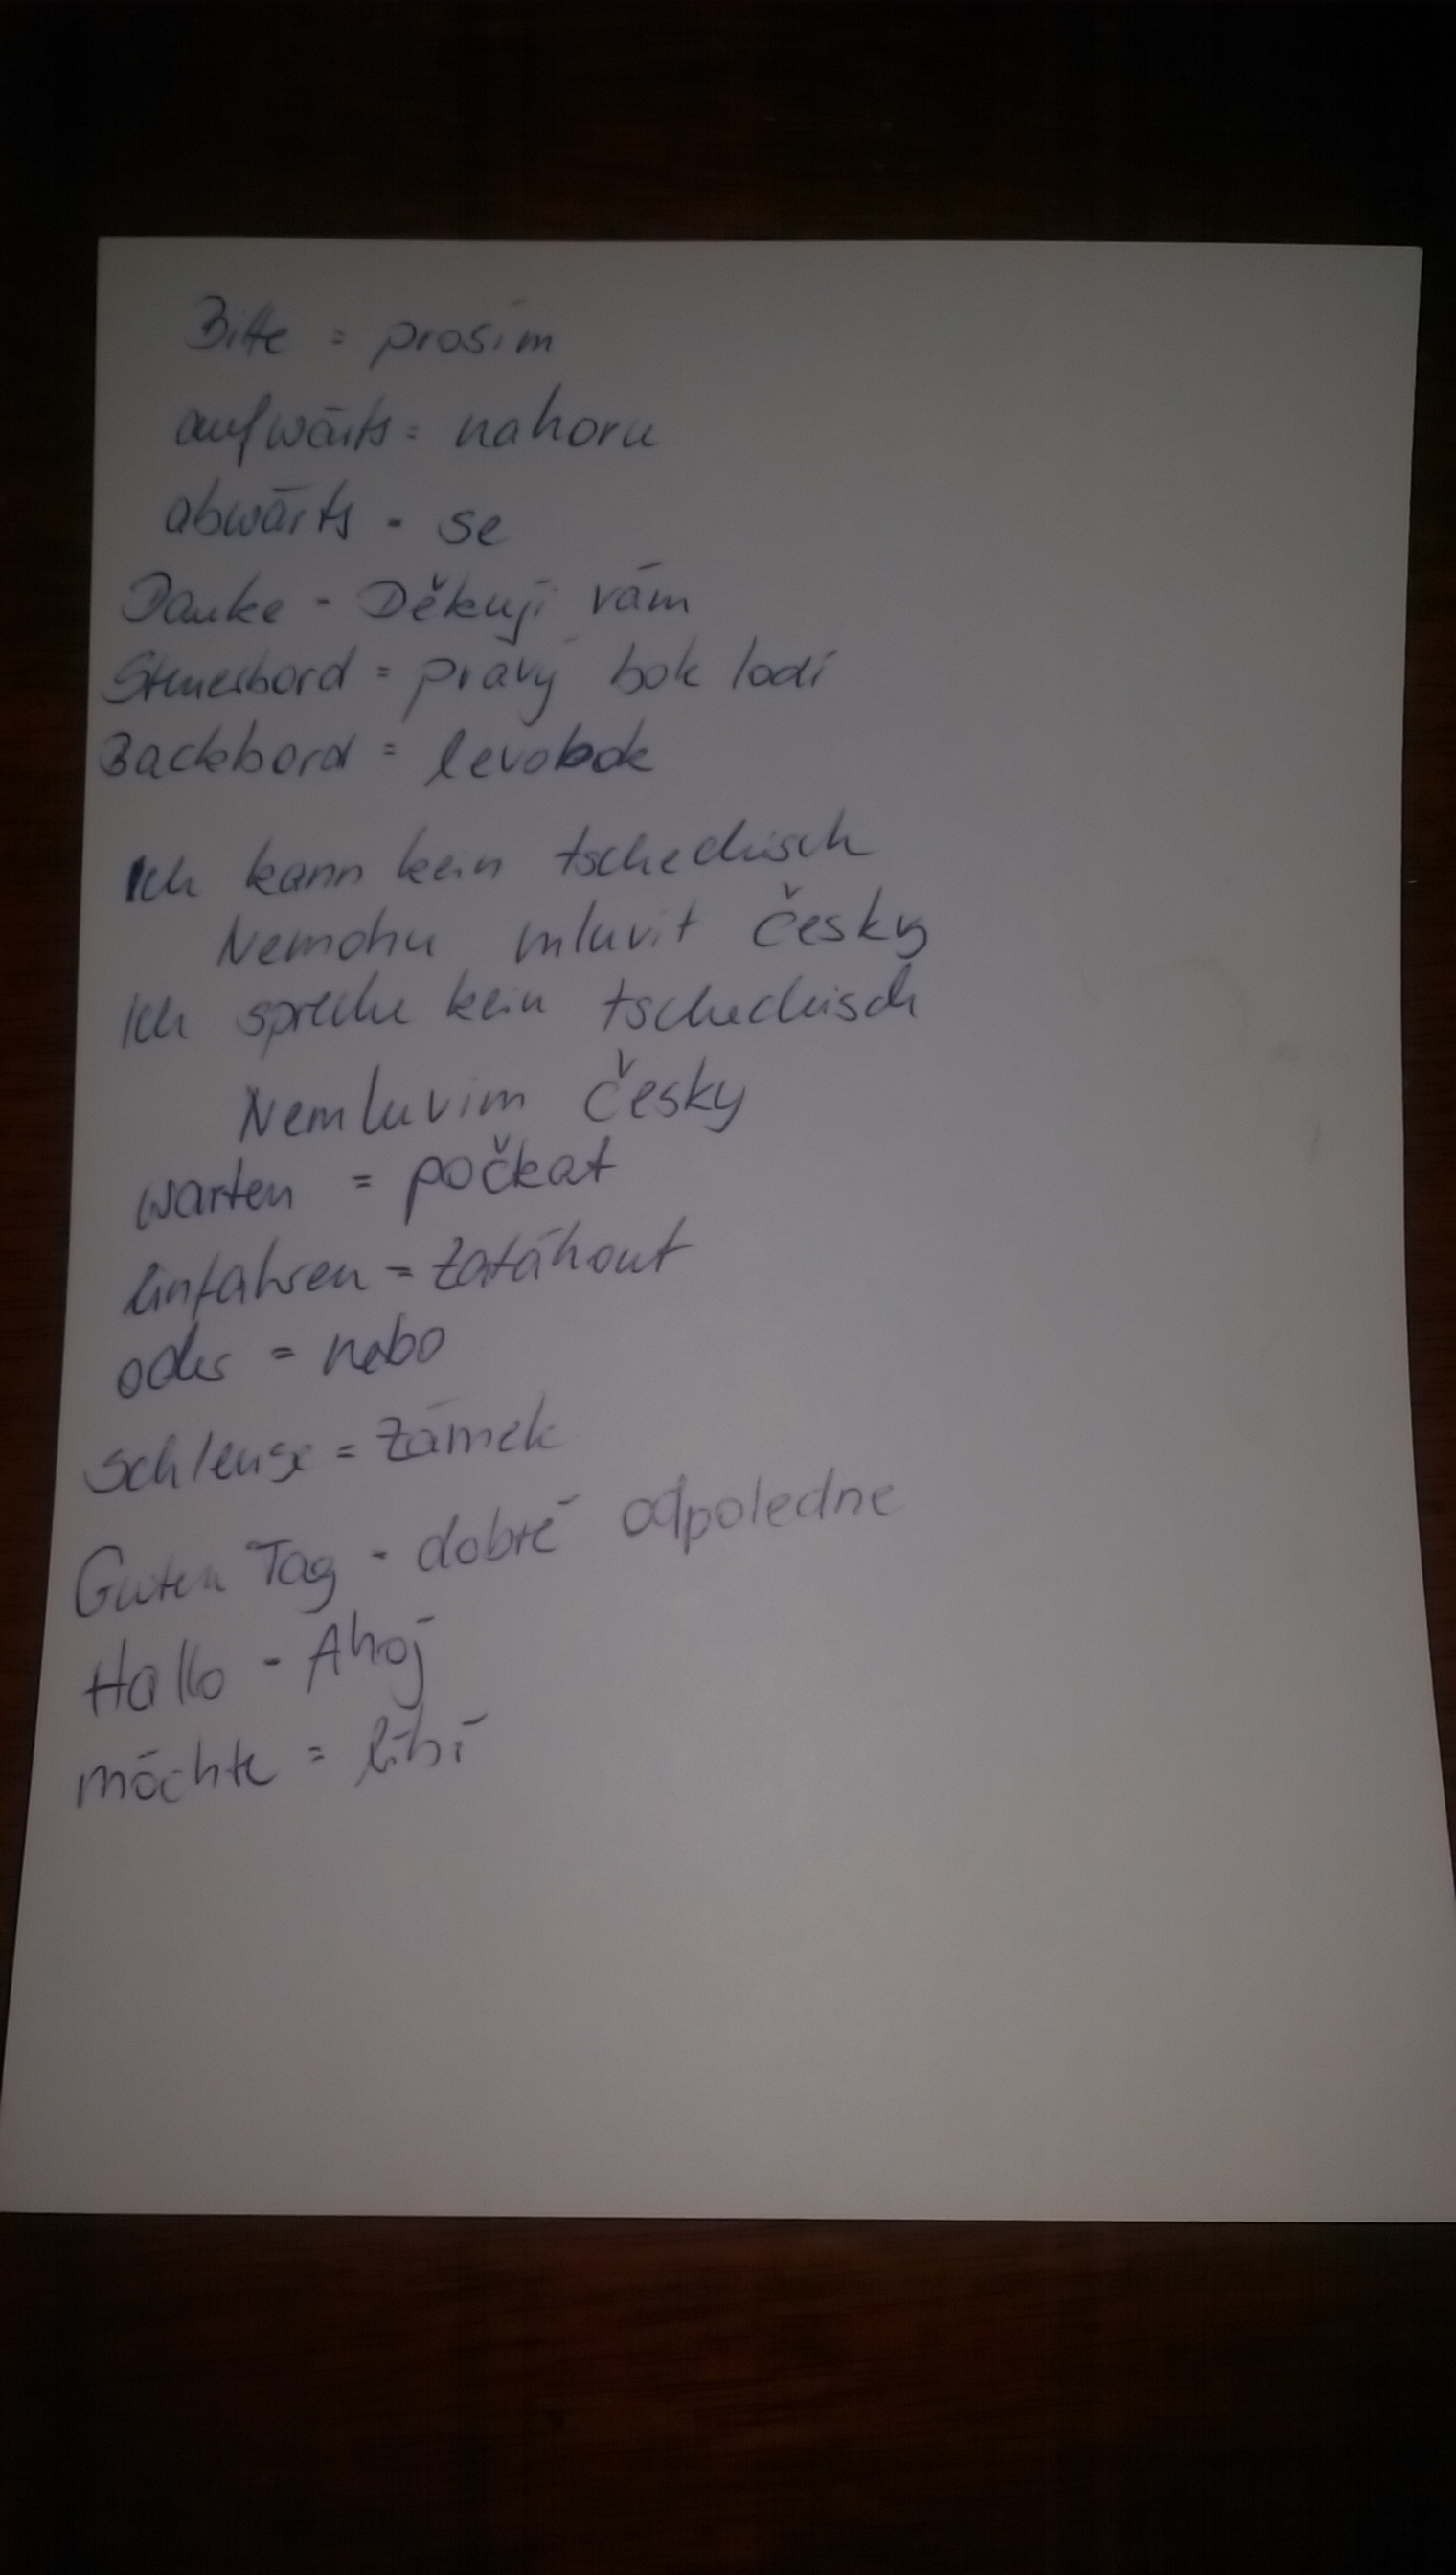 Bitte = prosím
aufwärts = nahoru
abwärts - se
Danke - Děkuji vám
Steuerbord = pravý bok lodi
Backbord = levobok
Ich kann kein tschechisch
Nemohu mluvit česky
Ich spreche kein tschechisch
Nemluvim česky
warten = počkat
einfahren = zatáhout
oder = nebo
Schleuse = zámek
Guten Tag - dobré odpoledne
Hallo - Ahoj
möchte = líbí